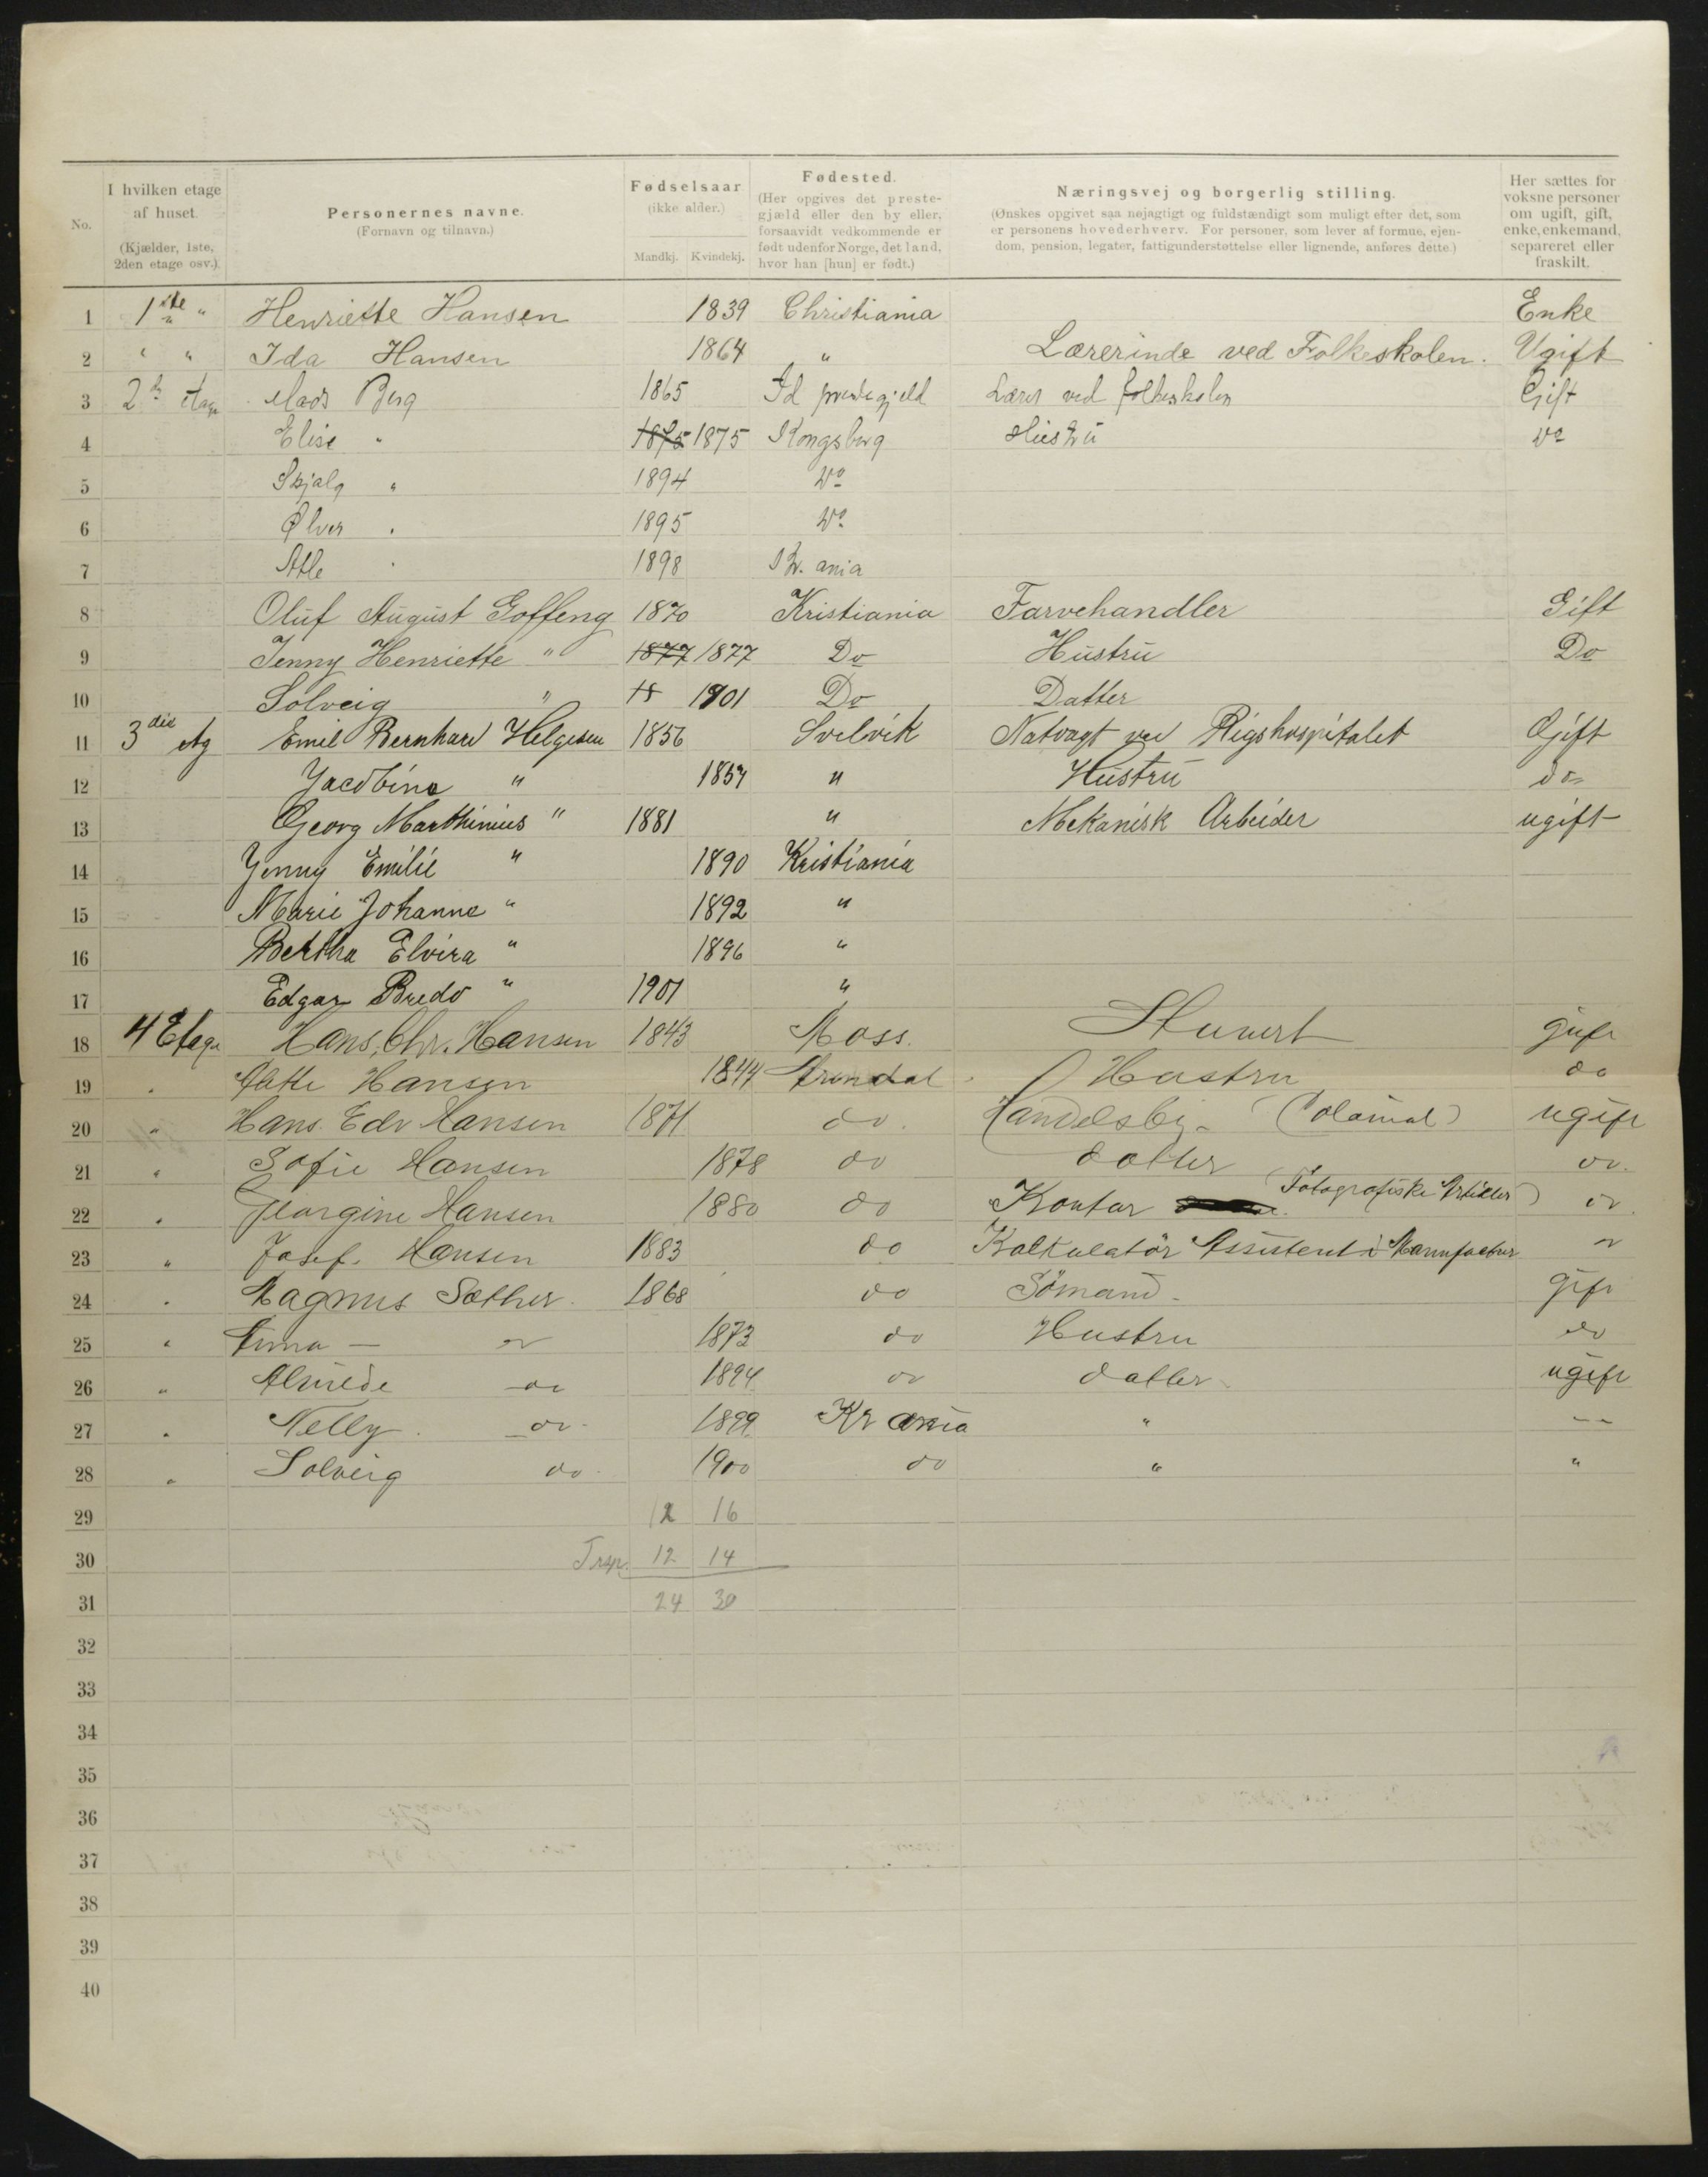 No. | I hvilken etage af huset. (Kjælder, 1ste, 2den etage osv.) | Personernes navne. (Fornavn og tilnavn.) | Fødselsaar (ikke alder.) Mandkj. Kvindekj. | Fødested. (Her opgives det prestegjæld eller den by eller, forsaavidt vedkommende er født udenfor Norge, det land, hvor han [hun] er født.) | Næringsvej og borgerlig stilling. (Ønskes opgivet saa nøjagtigt og fuldstændigt som muligt efter det, som er personens hovederhverv. For personer, som lever af formue, ejendom, pension, legater, fattigunderstøttelse eller lignende, anføres dette.) | Her sættes for voksne personer om ugift, gift, enke, enkemand, separeret eller fraskilt.
1 1ste " Henriette Hansen 1839 Christiania Enke
2 " " Ida Hansen 1864 " Lærerinde ved Folkeskolen. Ugift
3 2 etage Mads Berg 1865 Id prestegjeld Lærer ved folkeskolen Gift
4 Elise " 1875 1875 Kongsberg Hustru Do
5 Skjalg " 1894 Do
6 Ølver " 1895 Do
7 Atle " 1898 Kr. ania
8 Oluf August Goffeng 1870 Kristiania Farvehandler Gift
9 Jenny Henriette " 1877 1877 Do Hustru Do
10 Solveig " 18 1901 Do Datter
11 3die Etg Emil Bernhard Helgesen 1856 Svelvik Natvagt ved Rigshospitalet Gift
12 Jacobine " 1857 " Hustru do
13 Georg Marthinius " 1881 " Mekanisk Arbeider ugift
14 Jenny Emilie " 1890 Kristiania
15 Marie Johanne " 1892 "
16 Bertha Elvira " 1896 "
17 Edgar Bredo " 1901 "
18 4 Etage Hans. Chr. Hansen 1843 Moss. Stuvert gift
19 " Hansen 1844 Arendal Hustru do
20 " Hans. Edv Hansen 1871 do. Handelsbj. (Colonial) ugift
21 " Sofie Hansen 1878 do datter do.
22 " Georgine Hansen 1880 do Kontor (Fotografiske Artikler) do.
23 " Josef. Hansen 1883 do Kalkulatör Assistent i Mannfactur do
24 " Magnus Sæther. 1868 do Sömand. gift
25 " Anna — do 1873 do Hustru do
26 " do 1894 do datter ugift
27 " Nelly. do. 1899 Kr ania " "
28 " Solveig do. 1900 do " "
29 12 16
30 Trsp. 12 14
31 24 30
32
33
34
35
36
37
38
39
40